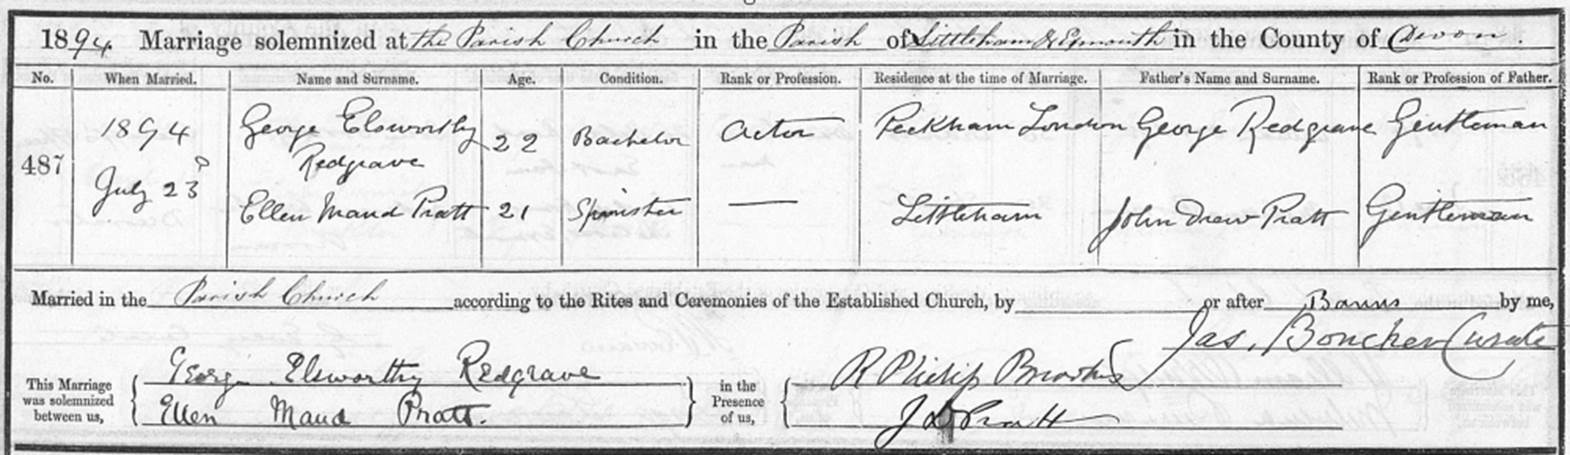 1894 Marriage solemnized at the Parish Church in the Parish of Littleham & Exmouth in the County of Devon.
No. When Married. Name and Surname. Age. Condition. Rank or Profession. Residence at the time of Marriage. Father's Name and Surname. Rank or Profession of Father.
487 1894 July 23 George Elsworthy Redgrave 22 Bachelor Actor Peckham London George Redgrave Gentleman
Ellen Maud Pratt 21 Spinster — Littleham John Drew Pratt Gentleman
Married in the Parish Church according to the Rites and Ceremonies of the Established Church, by or after Banns by me,
Jas. Boucher Curate
This Marriage was solemnized between us, George Elsworthy Redgrave in the Presence of us, R Philip
Ellen Maud Pratt. J D Pratt